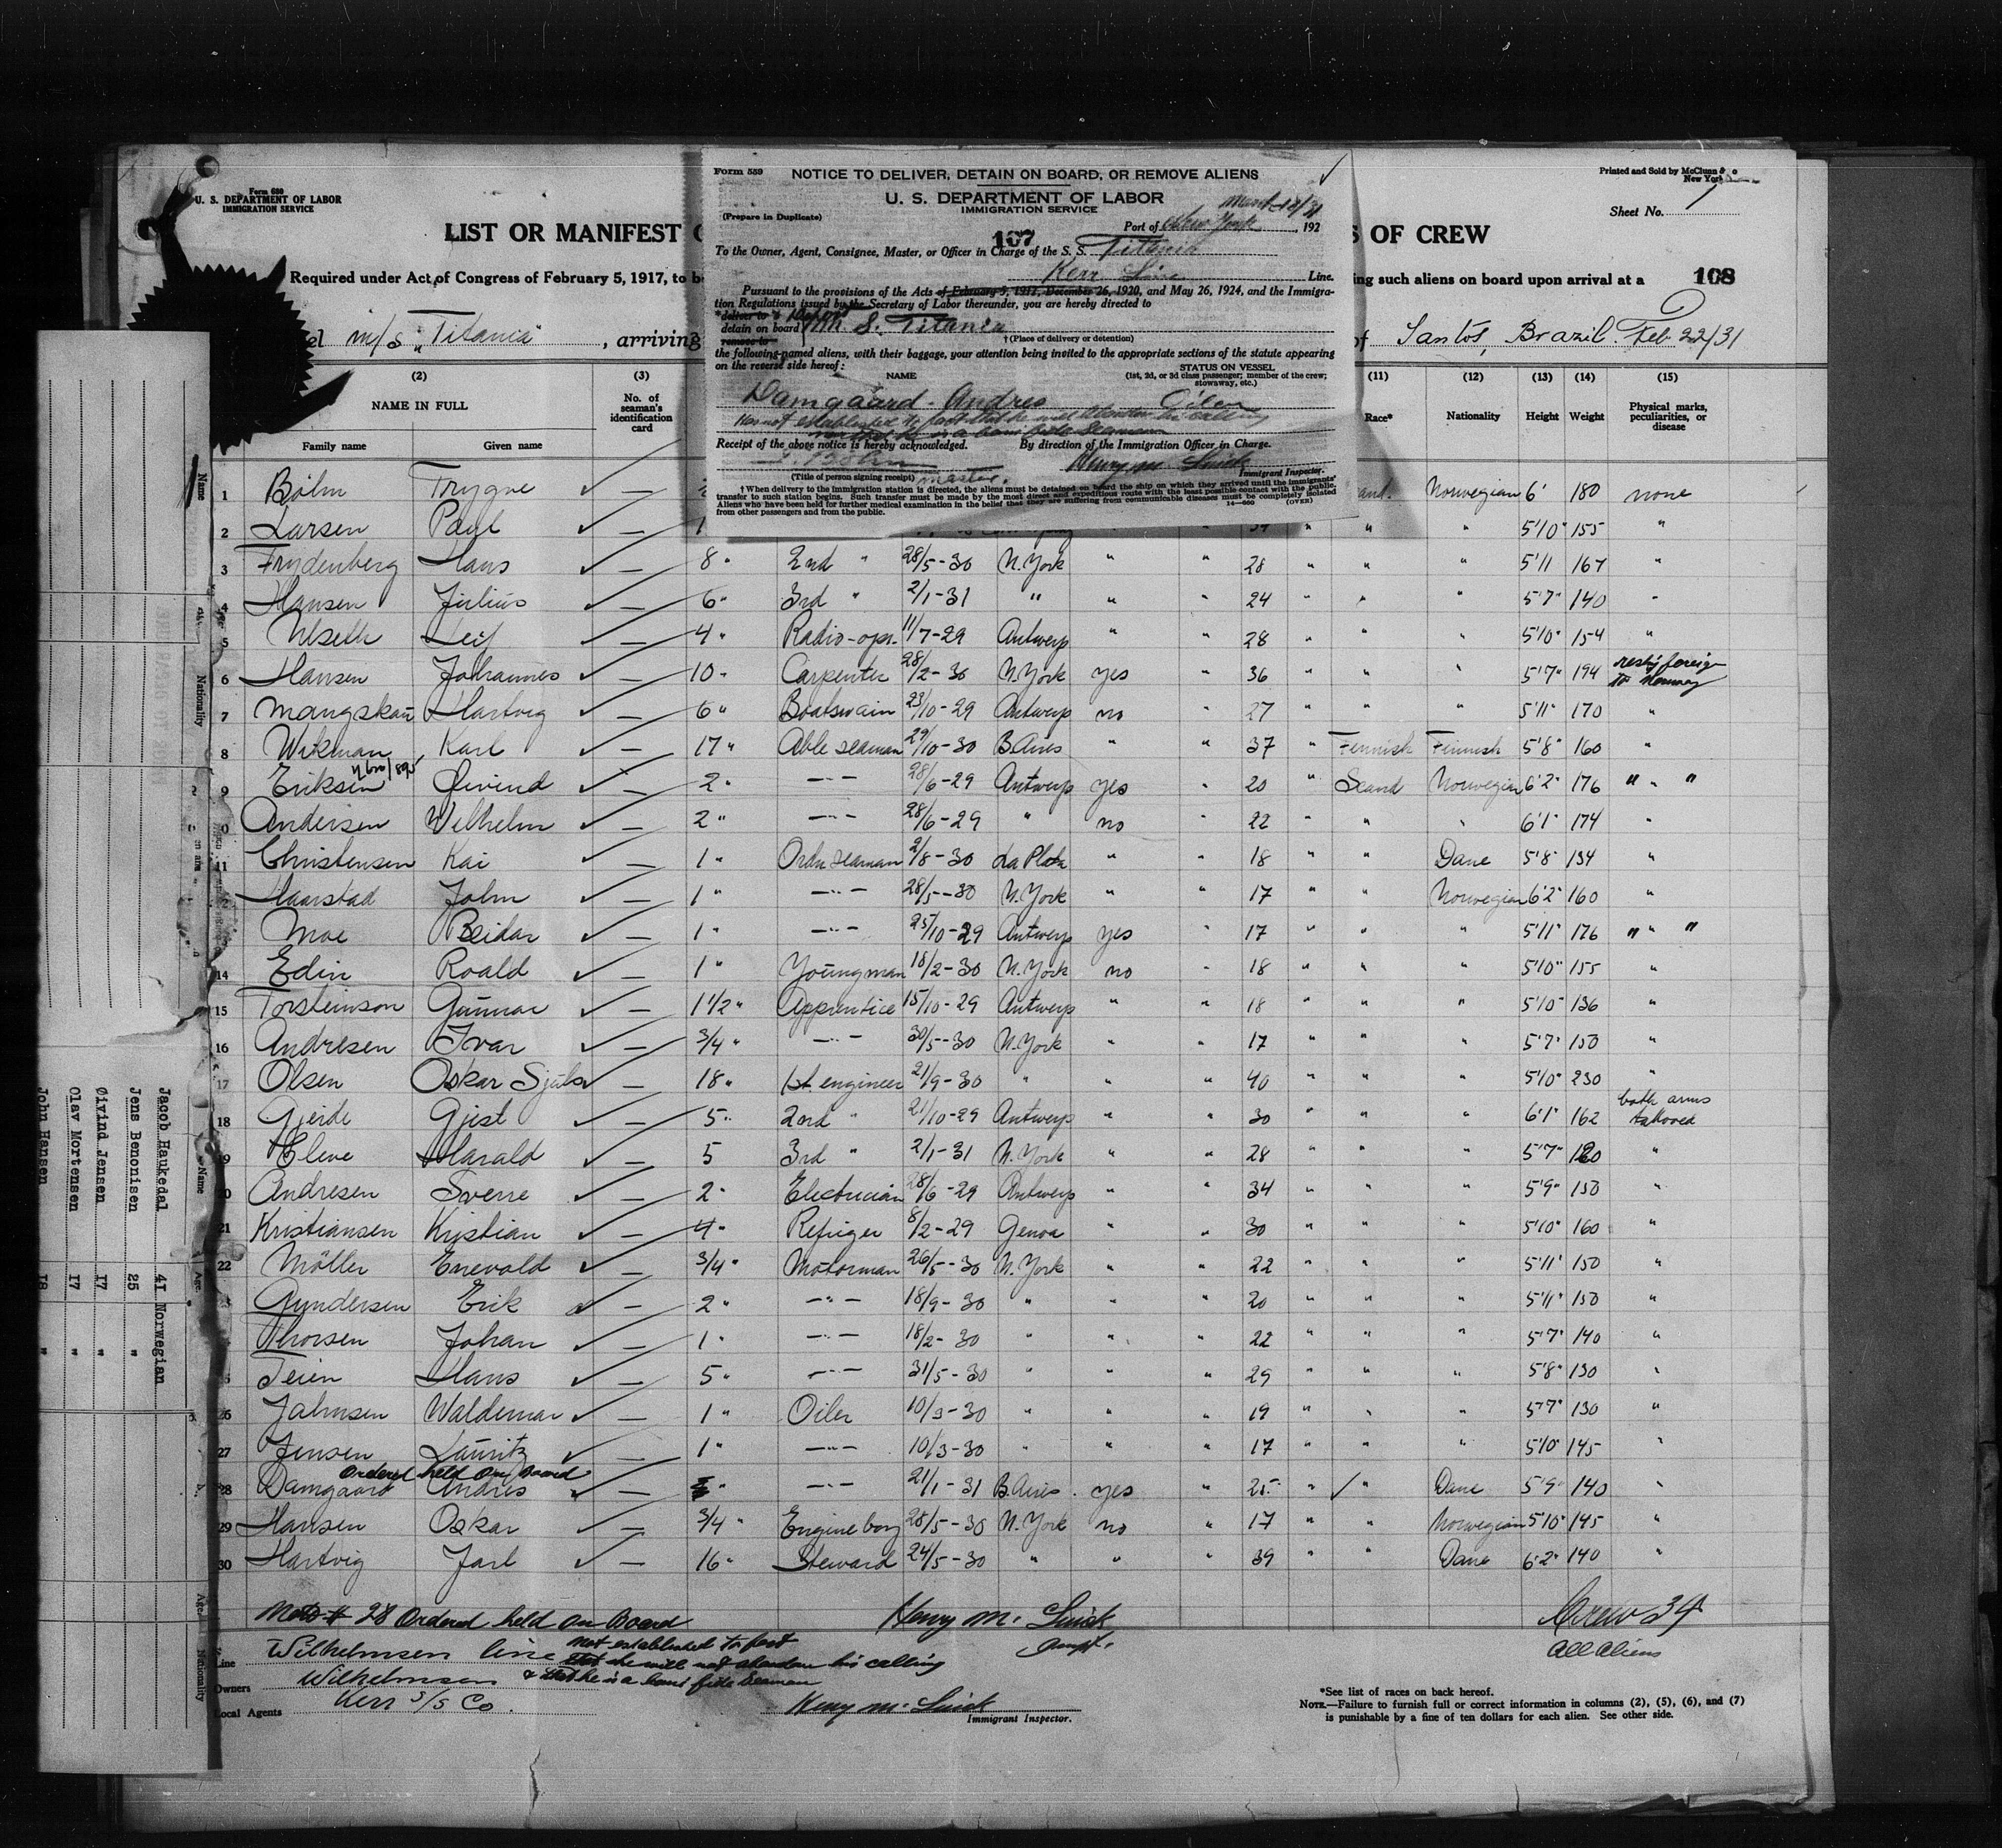 Form 689
U. S. DEPARTMENT OF LABOR
IMMIGRATION SERVICE
Printed and Sold by McClunn & Co
New York
Sheet No. 1
LIST OR MANIFEST
S OF CREW
Required under Act of Congress of February 5, 1917, to be
ing such aliens on board upon arrival at a
108
m/s "Titania", arriving
of Santos, Brazil. Feb 22/31
Form 559
NOTICE TO DELIVER, DETAIN ON BOARD, OR REMOVE ALIENS
U. S. DEPARTMENT OF LABOR
IMMIGRATION SERVICE
(Prepare in Duplicate)
Port of New York, 192
107
To the Owner, Agent, Consignee, Master, or Officer in Charge of the S. S. Titania
Kerr Line Line.
Pursuant to the provisions of the Acts of February 5, 1917, December 26, 1920, and May 26, 1924, and the Immigra-
tion Regulations issued by the Secretary of Labor thereunder, you are hereby directed to
*deliver to
detain on board M. S. Titania
remove to
†(Place of delivery or detention)
the following-named aliens, with their baggage, your attention being invited to the appropriate sections of the statute appearing
on the reverse side hereof:
NAME
STATUS ON VESSEL
(1st, 2d, or 3d class passenger; member of the crew;
stowaway, etc.)
Damgaard - Andres Oiler
Receipt of the above notice is hereby acknowledged.
By direction of the Immigration Officer in Charge.
Henry M. Luick
Immigrant Inspector.
(Title of person signing receipt) master.
†When delivery to the immigration station is directed, the aliens must be detained on board the ship on which they arrived until the immigrants'
transfer to such station begins. Such transfer must be made by the most direct and expeditious route with the least possible contact with the public.
Aliens who have been held for further medical examination in the belief that they are suffering from communicable diseases must be completely isolated
from other passengers and from the public.
14—660 (OVER)
(2) (3) (11) (12) (13) (14) (15)
NAME IN FULL
No. of seaman's identification card
Race* Nationality Height Weight Physical marks, peculiarities, or disease
Family name Given name
1 Böhm Trygve Norwegian 6' 180 none
2 Larsen Paul " " 5'10" 155 "
3 Frydenberg Hans 8 " 2nd " 28/5-30 N.York " " 28 " " " 5'11 167 "
4 Hansen Julius 6 " 3rd " 2/1-31 " " " 24 " " " 5'7" 140 "
5 Ulseth Leif 4 " Radio-opr. 11/7-29 Antwerp " " 28 " " 5'10" 154 "
6 Hansen Johannes 10 " Carpenter 28/2-30 N.York yes " 36 " " " 5'7" 194
7 Mangskau Hartvig 6 " Boatswain 23/10-29 Antwerp no " 27 " " " 5'11" 170 "
8 Wikman Karl 17 " Able seaman 29/10-30 B.Aires " " 37 " Finnish Finnish 5'8" 160 "
9 Eriksen Øivind 2 " —"— 28/6-29 Antwerp yes " 20 " Scand Norwegian 6'2" 176 " " "
10 Andersen Wilhelm 2 " —"— 28/6-29 " no " 22 " " " 6'1" 174 "
11 Christensen Kai 1 " Ordn seaman 2/8-30 La Plata " " 18 " " Dane 5'8" 134 "
12 Haarstad John 1 " —"— 28/5-30 N.York " " 17 " " Norwegian 6'2" 160 "
13 Moe Reidar 1 " —"— 25/10-29 Antwerp yes " 17 " " " 5'11" 176 " " "
14 Edin Roald 1 " Youngman 18/2-30 N.York no " 18 " " " 5'10" 155 "
15 Torsteinson Gunnar 1 1/2 " Apprentice 15/10-29 Antwerp " " 18 " " " 5'10" 136 "
16 Andresen Ivar 3/4 " —"— 30/5-30 N.York " " 17 " " " 5'7" 150 "
17 Olsen Oskar 18 " 1st engineer 21/9-30 " " " 40 " " " 5'10" 230 "
18 Gjerde Gjest 5 " 2nd " 21/10-29 Antwerp " " 30 " " " 6'1" 162 both arms tattooed
19 Cleve Harald 5 3rd " 2/1-31 N.York " " 28 " " " 5'7" "
20 Andresen Sverre 2 " Electrician 28/6-29 Antwerp " " 34 " " " 5'9" 150 "
21 Kristiansen Kristian 4 " Refriger 8/2-29 Genoa " " 30 " " " 5'10" 160 "
22 Möller Enevald 3/4 " Motorman 26/5-30 N.York " " 22 " " " 5'11" 150 "
Gundersen Erik 2 " —"— 18/9-30 " " " 20 " " " 5'11" 150 "
Thorsen Johan 1 " —"— 18/2-30 " " " 22 " " " 5'7" 140 "
Teien Hans 5 " —"— 31/5-30 " " " 29 " " " 5'8" 130 "
26 Jahnsen Waldemar 1 " Oiler 10/3-30 " " " 19 " " " 5'7" 130 "
27 Jensen Lauritz 1 " —"— 10/3-30 " " " 17 " " " 5'10" 145 "
Ordered held on board
28 Damgaard Andres " —"— 21/1-31 B.Aires yes " 25 " " Dane 5'9" 140 "
29 Hansen Oskar 3/4 " Engine boy 28/5-30 N.York no " 17 " " Norwegian 5'10" 145 "
30 Hartvig Jarl 16 " Steward 24/5-30 " " " 39 " " Dane 6'2" 140 "
Note # 28 Ordered held on Board
Henry M. Luick
Inspt.
Crew 34
All Aliens
Line Wilhelmsen line
not established to fact
that he will not abandon his calling
& that he is a bona fide Seaman
Owners Wilhelmsen
Local Agents Kerr S/S Co.
Henry M. Luick
Immigrant Inspector.
*See list of races on back hereof.
NOTE.—Failure to furnish full or correct information in columns (2), (5), (6), and (7)
is punishable by a fine of ten dollars for each alien. See other side.
Name Age Nationality
Jacob Haukedal 41 Norwegian
Jens Benonisen 25 "
Øivind Jensen 17 "
Olav Mortensen 17 "
John Hansen 18 "